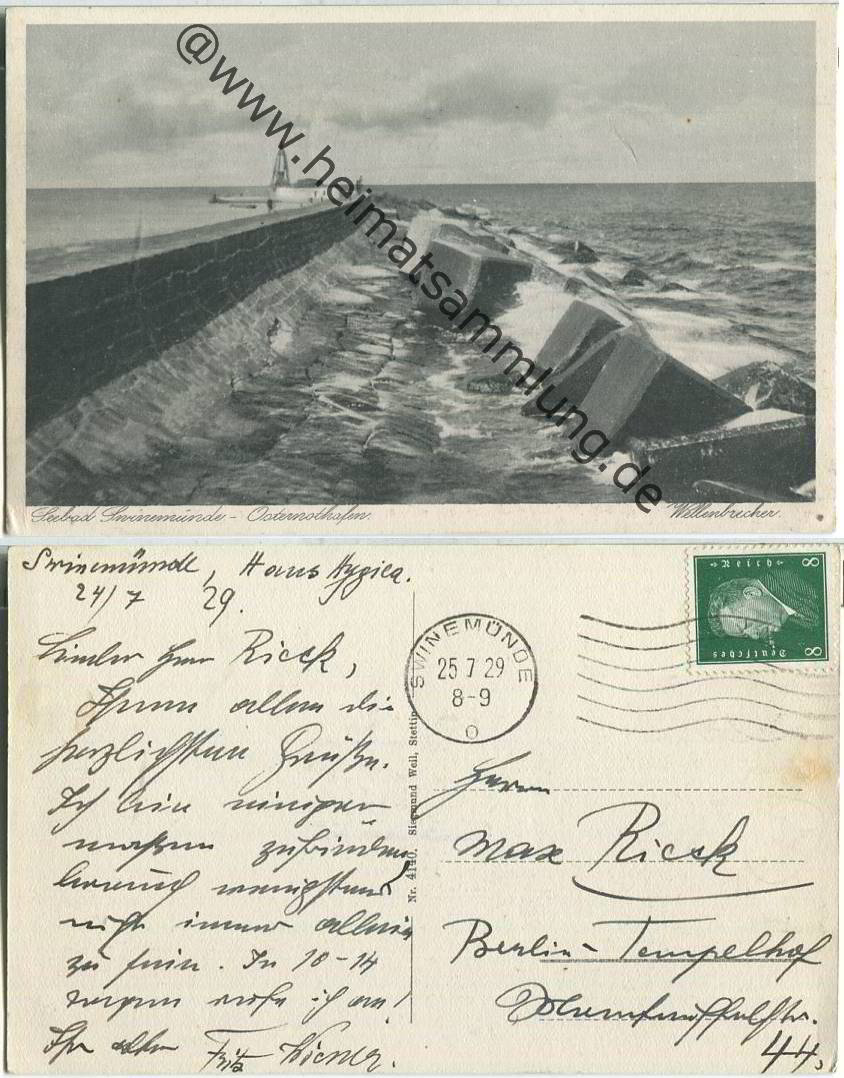 @www.heimatsammlung.de
Seebad Swinemünde - Osternothafen.
Wellenbrecher.
Swinemünde, Haus Hygiea.
24/7 29.
Lieber Herr Rieck,
Ihnen allen die
herzlichsten Grüße.
Ich bin einiger-
maßen zufrieden
wenigstens
nicht immer allein
zu sein. In 10-14
Tagen rufe ich an!
Ihr alter Fritz Wiener.
Nr. 4140. Siegmund Weil, Stettin
SWINEMÜNDE
25 7 29
8-9
o
8 Deutsches Reich 8
Herrn
Max Rieck
Berlin-Tempelhof
44,